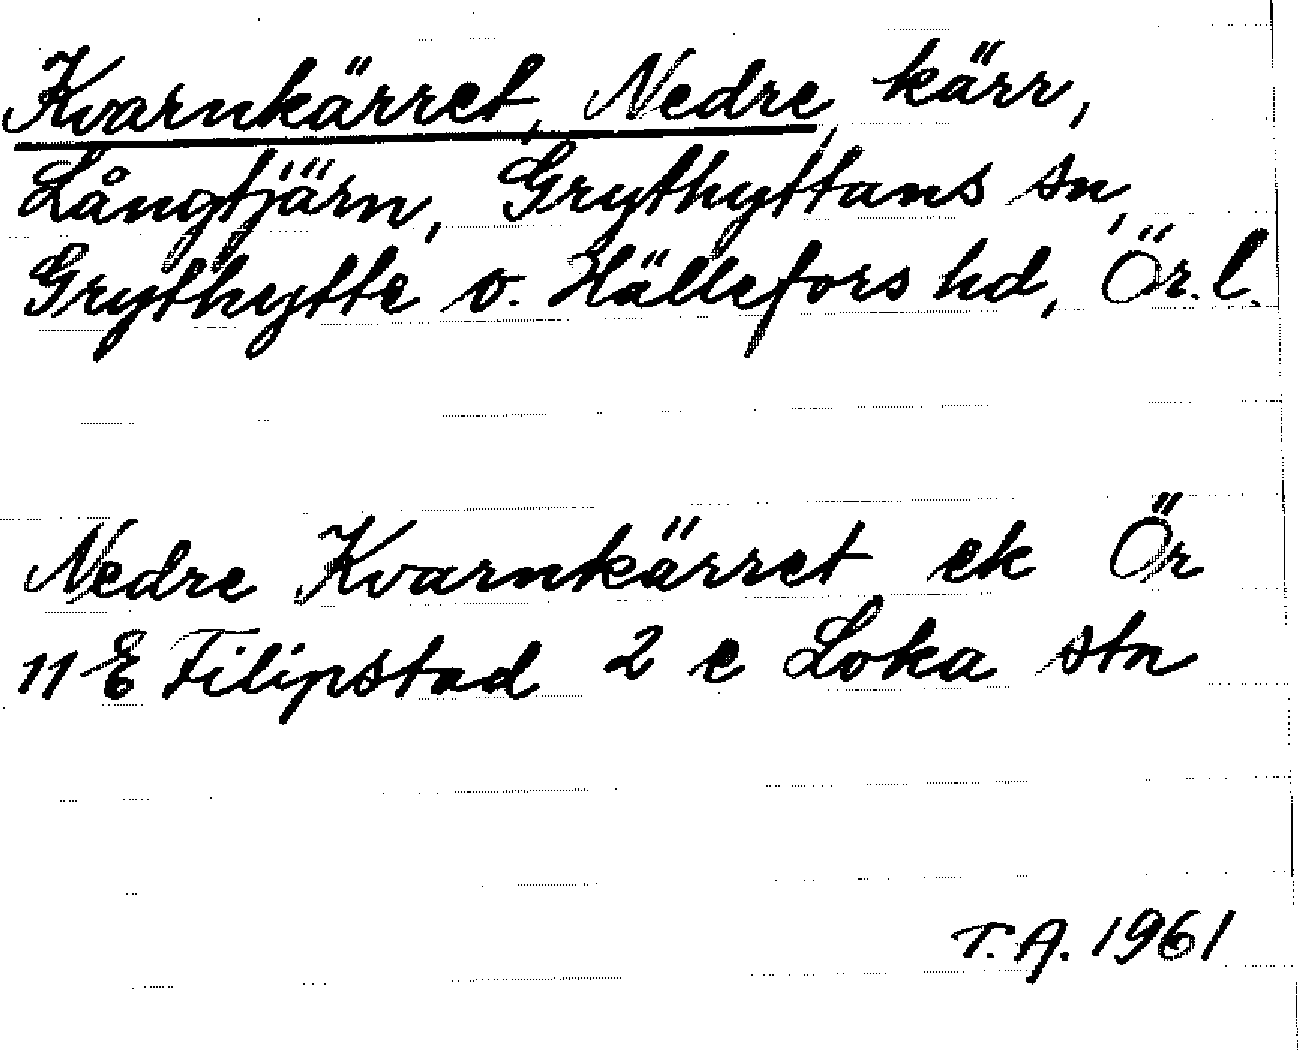 Kvarnkärret, Nedre, kärr,
Långtjärn, Grythyttans sn,
Grythytte o. Hällefors hd, Ör.l.
Nedre Kvarnkärret ek Ör
11 E Filipstad 2 c Loka stn
T.A. 1961